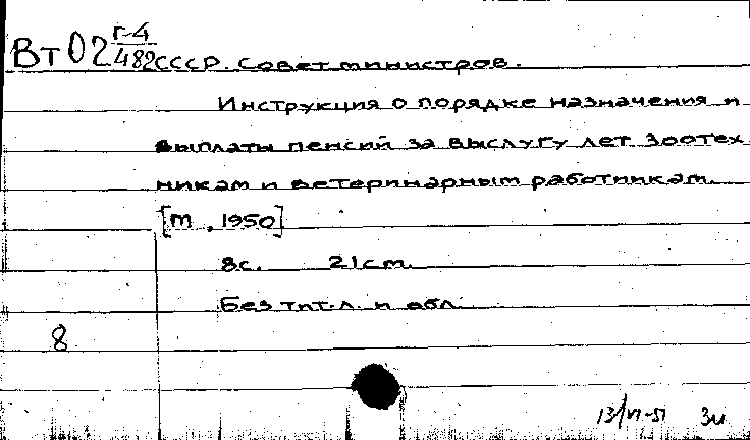 Вт 02 г-4/482 СССР. Совет министров.
Инструкция о порядке назначения и
выплаты пенсий за выслугу лет зоотех
никам и ветеринарным работникам.
[М, 1950]
8с. 21см.
Без тит. л. и обл.
8
13/VI-51 Зи